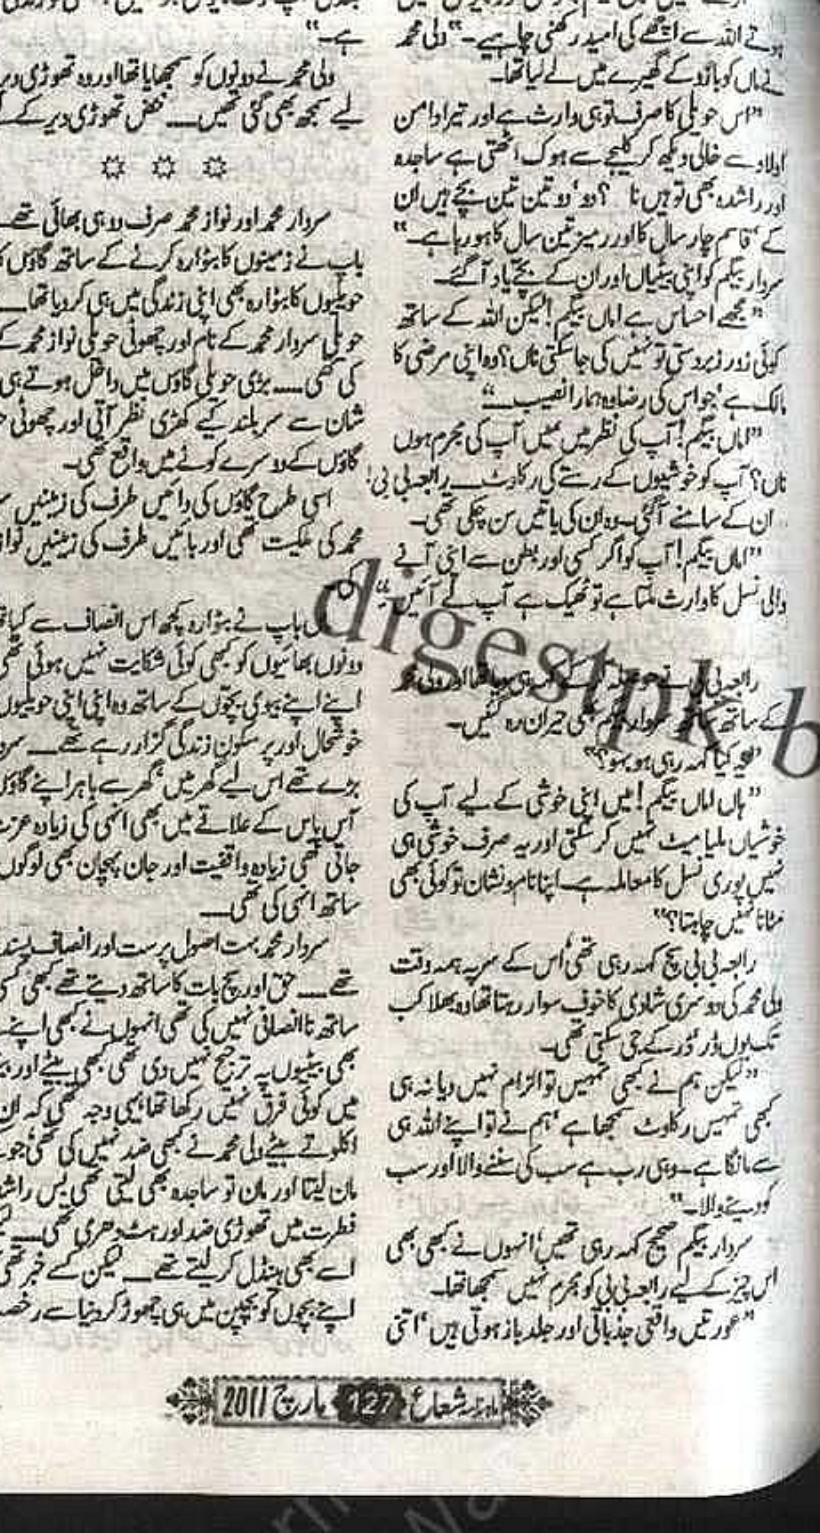 ہوتے اللہ سے اچھے کی امید رکھنی چاہیے۔“ ولی محمد
نے ماں کو بازو کے گھیرے میں لے لیا تھا۔
”اس حویلی کا صرف تو ہی وارث ہے اور تیرا دامن
اولاد سے خالی دیکھ کر کلیجے سے ہوک اٹھتی ہے ساجدہ
اور راشدہ بھی تو ہیں نا ؟ دو‘ دو تین تین بچے ہیں ان
کے‘ قاسم چار سال کا اور رمیز تین سال کا ہو رہا ہے۔“
سردار بیگم کو اپنی بیٹیاں اور ان کے بچے یاد آگئے۔
”مجھے احساس ہے اماں بیگم! لیکن اللہ کے ساتھ
کوئی زور زبردستی تو نہیں کی جاسکتی ناں؟ وہ اپنی مرضی کا
مالک ہے‘ جو اس کی رضا وہ ہمارا نصیب__“
”اماں بیگم! آپ کی نظر میں میں آپ کی مجرم ہوں
ناں؟ آپ کو خوشیوں کے رستے کی رکاوٹ__ رابعہ بی بی!
ان کے سامنے آگئی۔ وہ ان کی باتیں سن چکی تھی۔
”اماں بیگم! آپ کو اگر کسی اور بطن سے اپنی آنے
والی نسل کا وارث ملتا ہے تو ٹھیک ہے آپ لے آئیں“
رابعہ بی بی نے
کے ساتھ سردار بیگم بھی حیران رہ گئیں۔
”یہ کیا کہہ رہی ہو بہو؟“
”ہاں اماں بیگم! میں اپنی خوشی کے لیے آپ کی
خوشیاں ملیامیٹ نہیں کر سکتی اور یہ صرف خوشی ہی
نہیں پوری نسل کا معاملہ ہے۔ اپنا نام و نشان تو کوئی بھی
مٹانا نہیں چاہتا؟“
رابعہ بی بی سچ کہہ رہی تھی‘ اس کے سر پہ ہمہ وقت
ولی محمد کی دوسری شادی کا خوف سوار رہتا تھا وہ بھلا کب
تک یوں ڈر ڈر کے جی سکتی تھی۔
”لیکن ہم نے کبھی تمہیں تو الزام نہیں دیا نہ ہی
کبھی تمہیں رکاوٹ سمجھا ہے‘ ہم نے تو اپنے اللہ ہی
سے مانگا ہے۔ وہی رب ہے سب کی سننے والا اور سب
کو دینے والا۔“
سردار بیگم صحیح کہہ رہی تھیں‘ انہوں نے کبھی بھی
اس چیز کے لیے رابعہ بی بی کو مجرم نہیں سمجھا تھا۔
”عورتیں واقعی جذباتی اور جلد باز ہوتی ہیں‘ اتنی
ہے۔“
ولی محمد نے دونوں کو سمجھایا تھا اور وہ تھوڑی دیر
لیے سمجھ بھی گئی تھیں__ محض تھوڑی دیر کے
سردار محمد اور نواز محمد صرف دو ہی بھائی تھے__
باپ نے زمینوں کا بٹوارہ کرنے کے ساتھ گاؤں
حویلیوں کا بٹوارہ بھی اپنی زندگی میں ہی کر دیا تھا__
حویلی سردار محمد کے نام اور چھوٹی حویلی نواز محمد کے
کی تھی__ بڑی حویلی گاؤں میں داخل ہوتے ہی
شان سے سر بلند کیے کھڑی نظر آتی اور چھوٹی
گاؤں کے دوسرے کونے میں واقع تھی۔
اسی طرح گاؤں کی دائیں طرف کی زمینیں
محمد کی ملکیت تھی اور بائیں طرف کی زمینیں نواز
کی
باپ نے بٹوارہ کچھ اس انصاف سے کیا تھا
دونوں بھائیوں کو کبھی کوئی شکایت نہیں ہوئی تھی
اپنے اپنے بیوی بچوں کے ساتھ وہ اپنی اپنی حویلیوں
خوشحال اور پرسکون زندگی گزار رہے تھے__
بڑے تھے اس لیے گھر میں‘ گھر سے باہر اپنے گاؤں
آس پاس کے علاقے میں بھی انہی کی زیادہ عزت
جاتی تھی زیادہ واقفیت اور جان پہچان بھی لوگوں
ساتھ انہی کی تھی__
سردار محمد بہت اصول پرست اور انصاف پسند
تھے__ حق اور سچ بات کا ساتھ دیتے تھے کبھی کسی
ساتھ ناانصافی نہیں کی تھی انہوں نے کبھی اپنے
بھی بیٹیوں پہ ترجیح نہیں دی تھی کبھی بیٹے اور
میں کوئی فرق نہیں رکھا تھا‘ یہی وجہ تھی کہ ان
اکلوتے بیٹے ولی محمد نے کبھی ضد نہیں کی تھی‘ جو
مان لیتا اور مان تو ساجدہ بھی لیتی تھی بس
فطرت میں تھوڑی ضد اور ہٹ دھرمی تھی__
اسے بھی ہینڈل کر لیتے تھے__ لیکن کسے خبر تھی
اپنے بچوں کو بچپن میں ہی چھوڑ کر دنیا سے
ماہنامہ شعاع 127 مارچ 2011
digestpk b